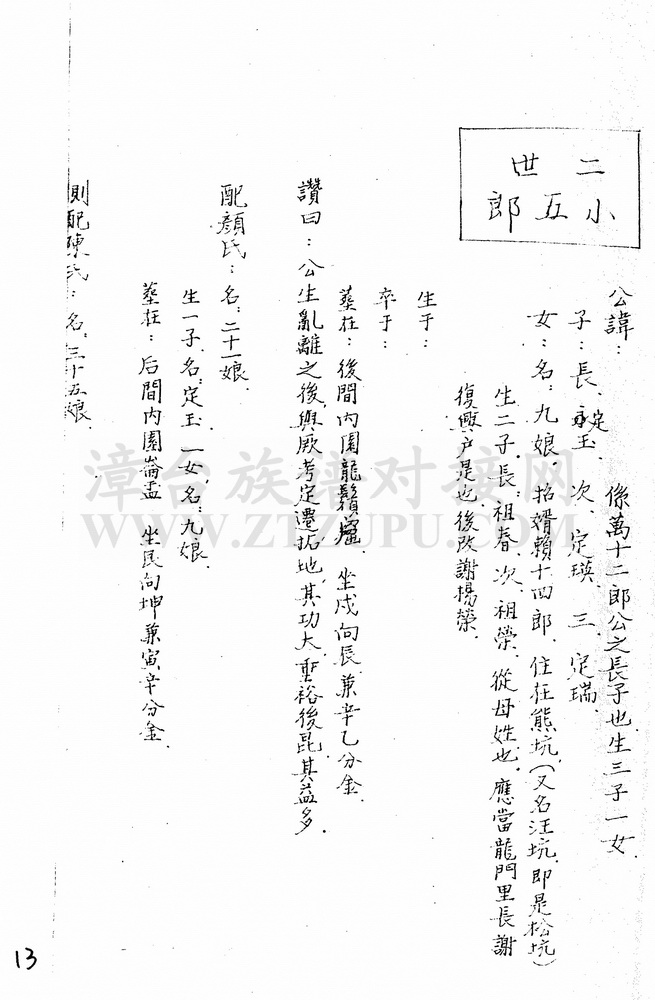 二世
小五郎
公諱： 係萬十二郎公之長子也生三子一女.
子：長.定玉. 次.定瑛. 三.定瑞.
女：名.九娘.招婿賴十四郎.住在熊坑.(又名汪坑.即是松坑)
生二子.長：祖春.次.祖榮.從母姓也.應當龍門里長謝
復興户是也.後改謝揚榮.
生于：
卒于：
葬在：後間内園龍鬚 坐戍向辰兼辛乙分金.
讚曰：公生亂離之後.與厥考定遷拓地.其功大.垂裕後昆.其益多.
配顏氏：名：二十一娘.
生一子.名：定玉.一女.名：九娘.
葬在：后間内園崙 坐艮向坤兼寅辛分金.
則配陳氏：名：三十五娘.
漳台族谱对接网
WWW.ZTZUPU.COM
13